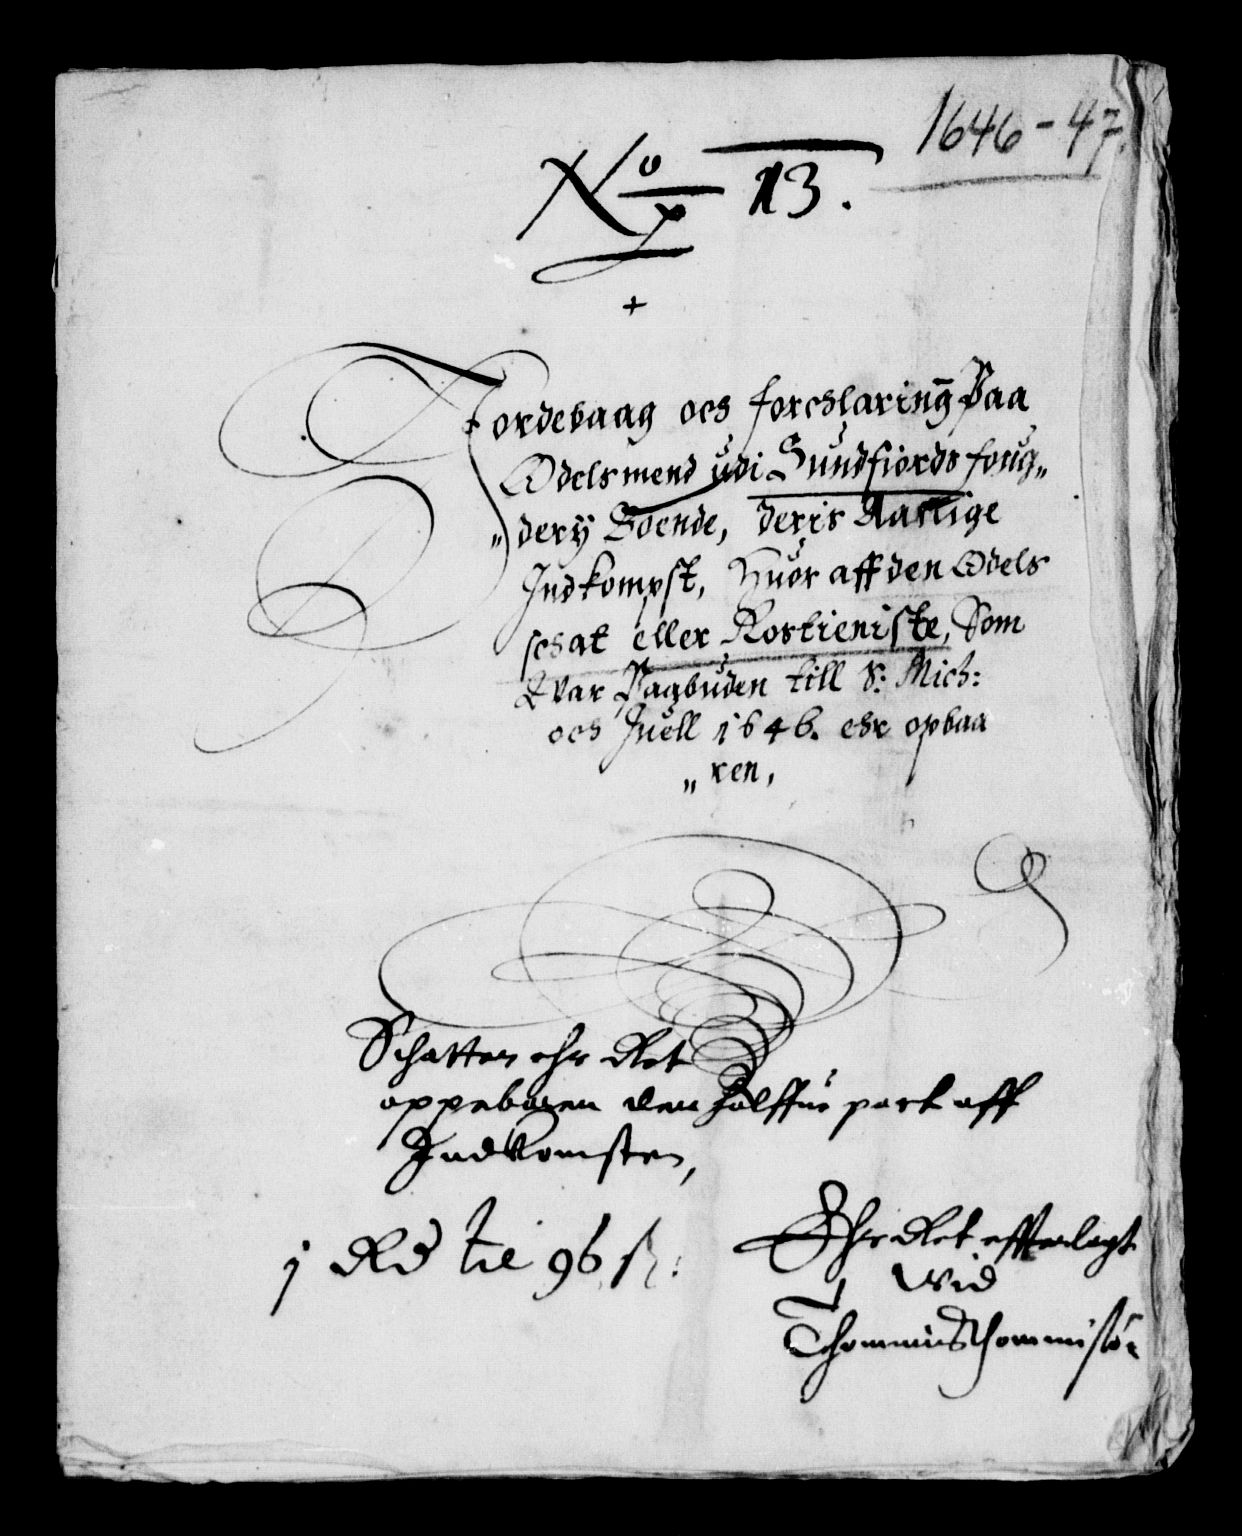 1646-47.
No 13.
+
Jordebaag och forchlaring Paa
Odelsmend udi Sundfiords foug„
„dery Boende, deris Aarlige
Indkompst, Huor aff den Odels
schat eller Rostieniste, Som
war Paabuden till S: Mich:
och Juell 1646. ehr opbaa
„ren,
Schatten ehr Ret
oppeboren den halffue part aff
Indkomsten,
j Rd til 96 ß:
Ehr Ret efferlagt
wid